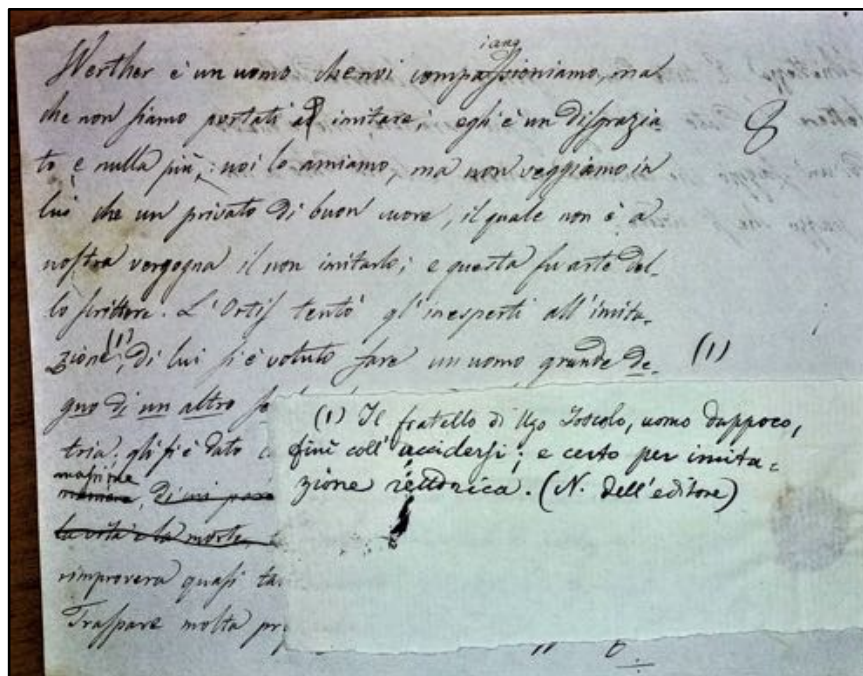 Werther è un uomo che noi compassioniamo, ma
iang
che non siamo portati ad imitare; egli è un disgrazia
to e nulla più; noi lo amiamo, ma non veggiamo in
lui che un privato di buon cuore, il quale non è a
nostra vergogna il non imitarlo; e questa fu arte del-
lo scrittore. L'Ortis tentò gl'inesperti all'imita-
zione (1); di lui si è voluto fare un uomo grande de-
(1)
gno di un altro
tria; gli si è dato
massime
maniera, di cui
la vita e la morte,
rimprovera quasi
Traspare molta
(1) Il fratello di Ugo Foscolo, uomo dappoco,
finì coll'uccidersi; e certo per imita=
zione rettorica. (N. dell'editore)